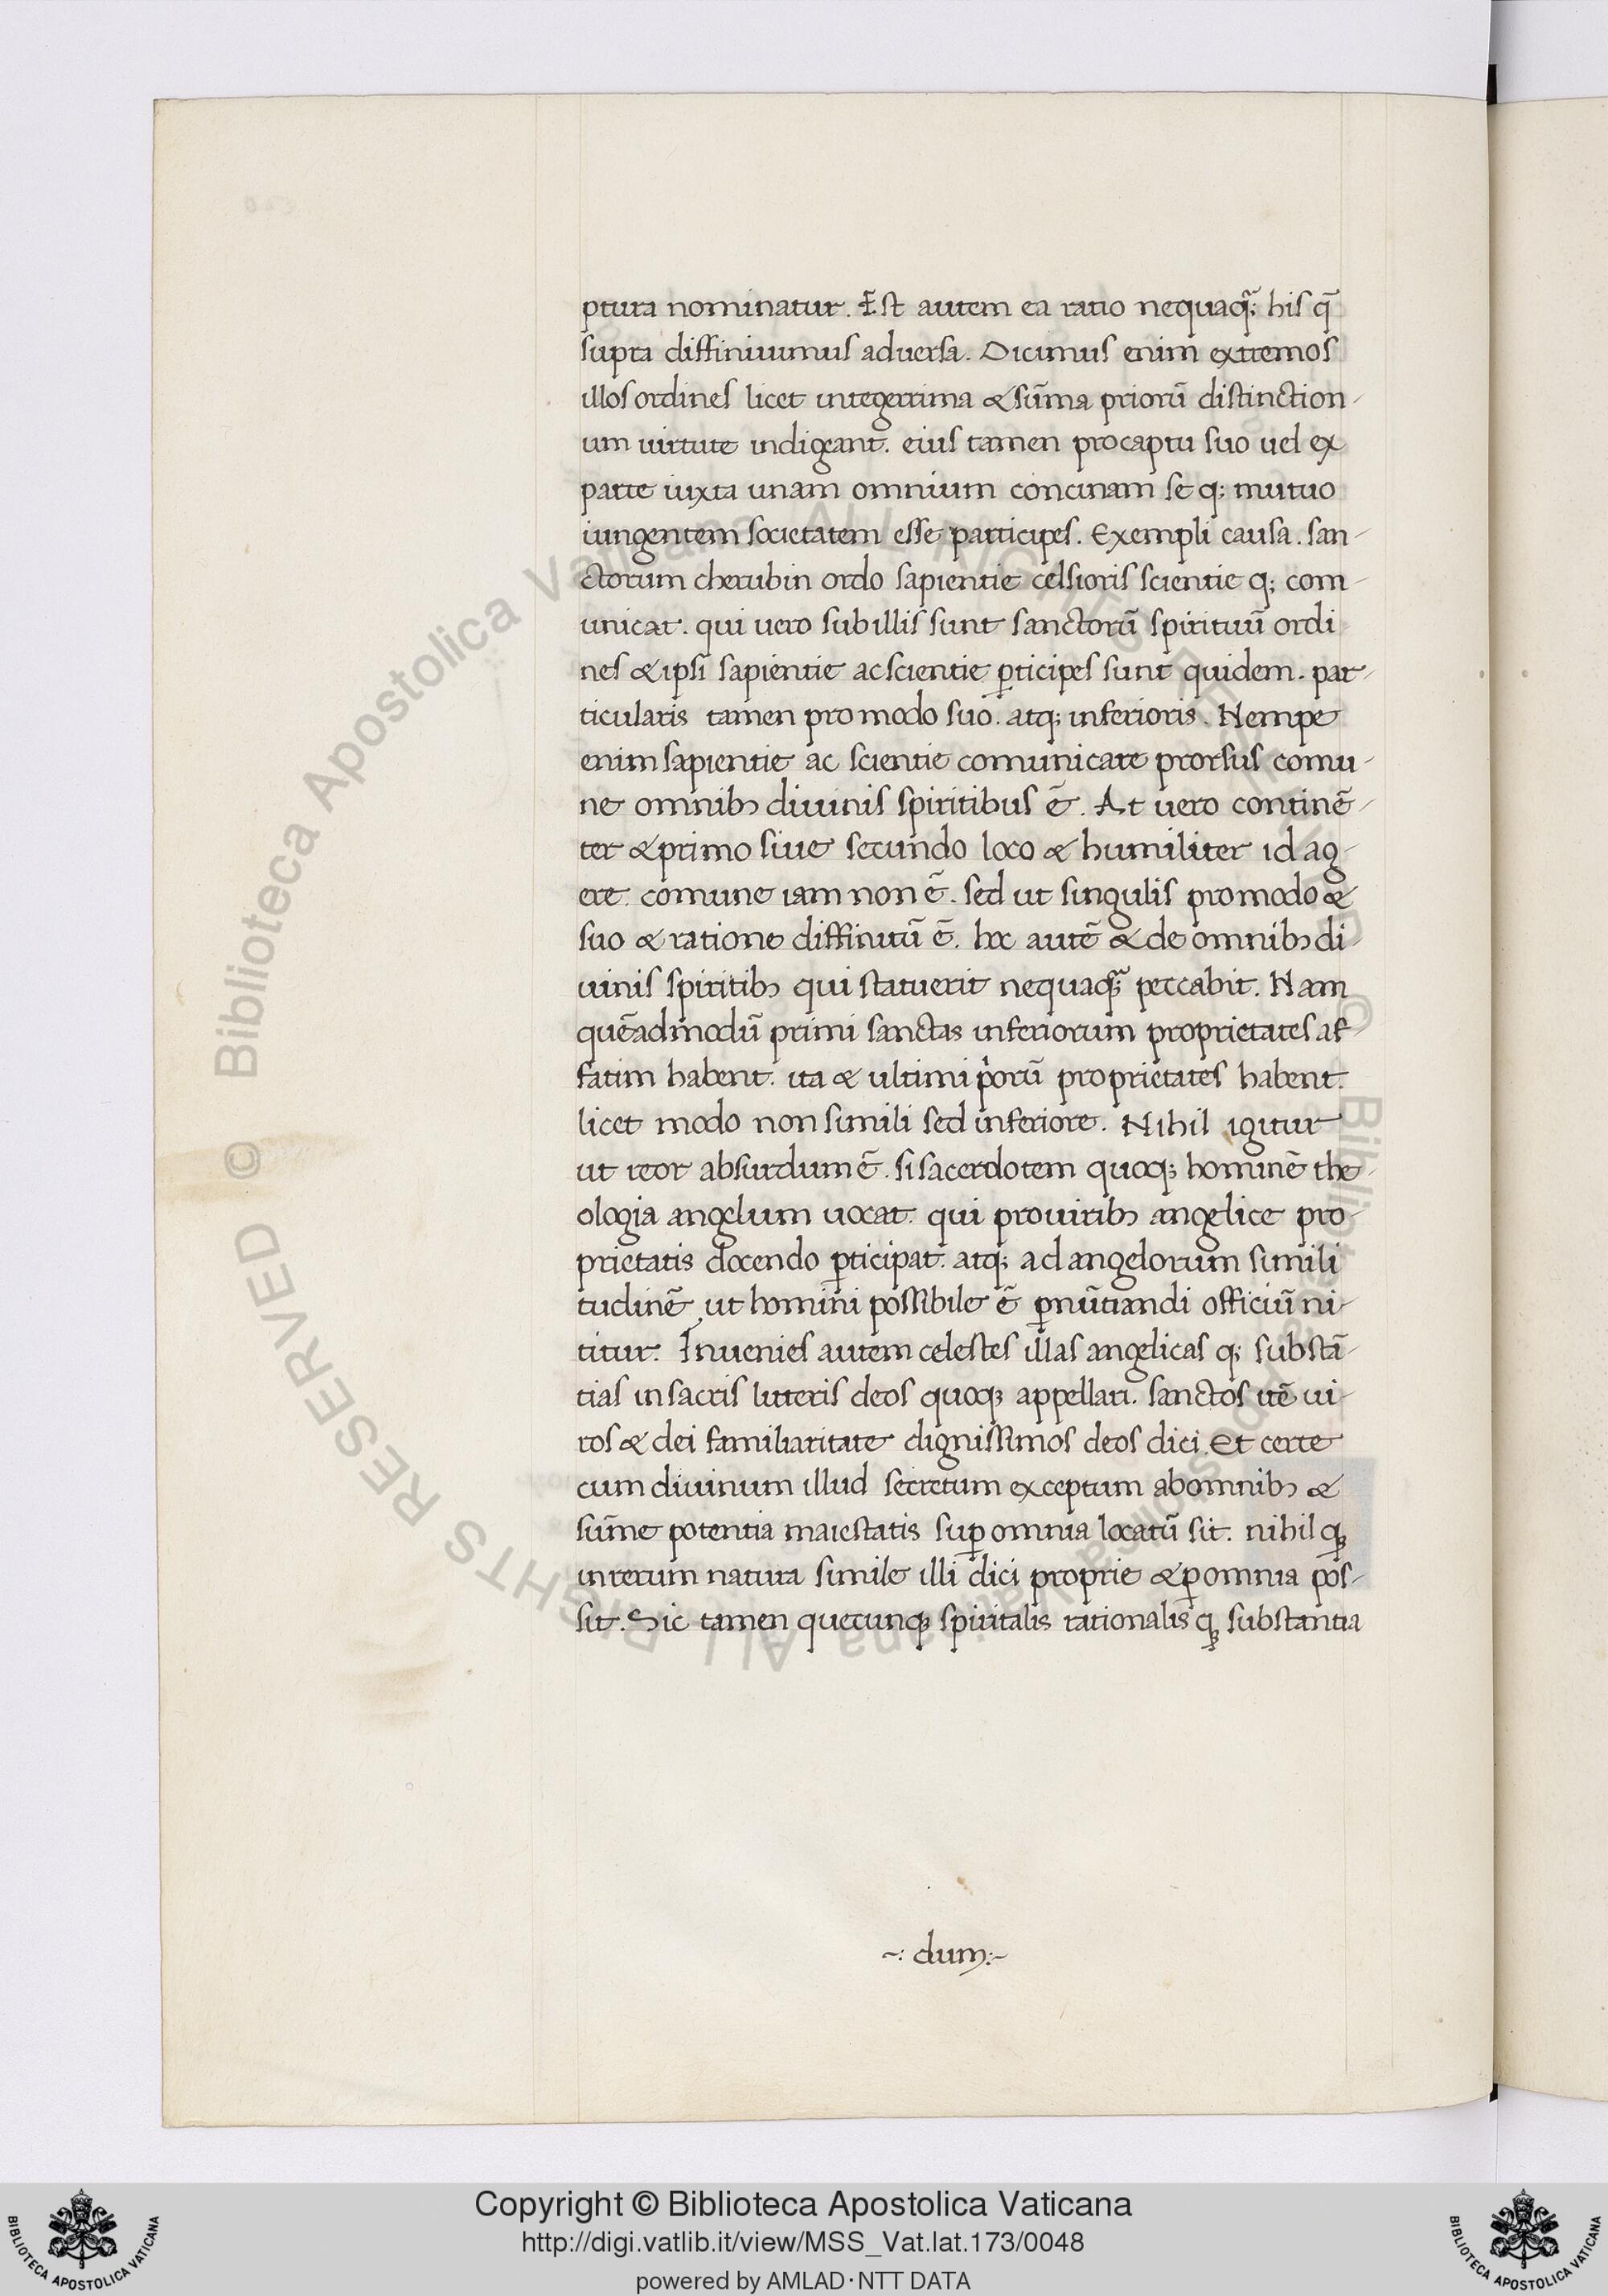 ptura nominatur. Est autem ea ratio nequaq̃; his q̃
supra diffiniuimus aduersa. Dicimus enim extremos
illos ordines licet integerrima & sũma priorũ distinction-
um uirtute indigeant. eius tamen pro captu suo uel ex
parte iuxta unam omnium concinam se q; mutuo
iungentem societatem esse participes. Exempli causa. san-
ctorum cherubin ordo sapientie celsioris scientie q; com-
unicat. qui uero sub illis sunt sanctorũ spirituũ ordi
nes & ipsi sapientie ac scientie ꝑticipes sunt quidem. par-
ticularis tamen pro modo suo. atq; inferioris. Nempe
enim sapientie ac scientie comunicare prorsus comu-
ne omnibꝫ diuinis spiritibus ẽ. At uero continẽ-
ter & primo siue secundo loco & humiliter id ag-
ere. comune iam non ẽ. sed ut singulis pro modo &
suo & ratione diffinitũ ẽ. hoc autẽ & de omnibꝫ di-
uinis spiritibꝫ qui statuerit nequaq̃; peccabit. Nam
quẽadmodũ primi sanctas inferiorum proprietates af-
fatim habent. ita & ultimi p̓orũ proprietates habent.
licet modo non simili sed inferiore. Nihil igitur
ut reor absurdum ẽ. si sacerdotem quoq; hominẽ the-
ologia angelum uocat. qui pro uiribꝫ angelice pro-
prietatis docendo ꝑticipat. atq; ad angelorum simili
tudinẽ, ut homini possibile ẽ ꝑnũtiandi officiũ ni-
titur. Inuenies autem celestes illas angelicas q; substã-
tias in sacris litteris deos quoq; appellari. sanctos itẽ ui-
ros & dei familiaritate dignissimos deos dici. Et certe
cum diuinum illud secretum exceptum ab omnibꝫ &
sũme potentia maiestatis suꝑ omnia locatũ sit. nihil q;
in rerum natura simile illi dici proprie & ꝑ omnia pos-
sit. Sic tamen quecunq; spiritalis rationalis q; substantia
-: dum :-
© Biblioteca Apostolica Vaticana ALL RIGHTS RESERVED
© Biblioteca Apostolica Vaticana ALL RIGHTS RESERVED
Copyright © Biblioteca Apostolica Vaticana
http://digi.vatlib.it/view/MSS_Vat.lat.173/0048
powered by AMLAD·NTT DATA
BIBLIOTECA APOSTOLICA VATICANA
BIBLIOTECA APOSTOLICA VATICANA